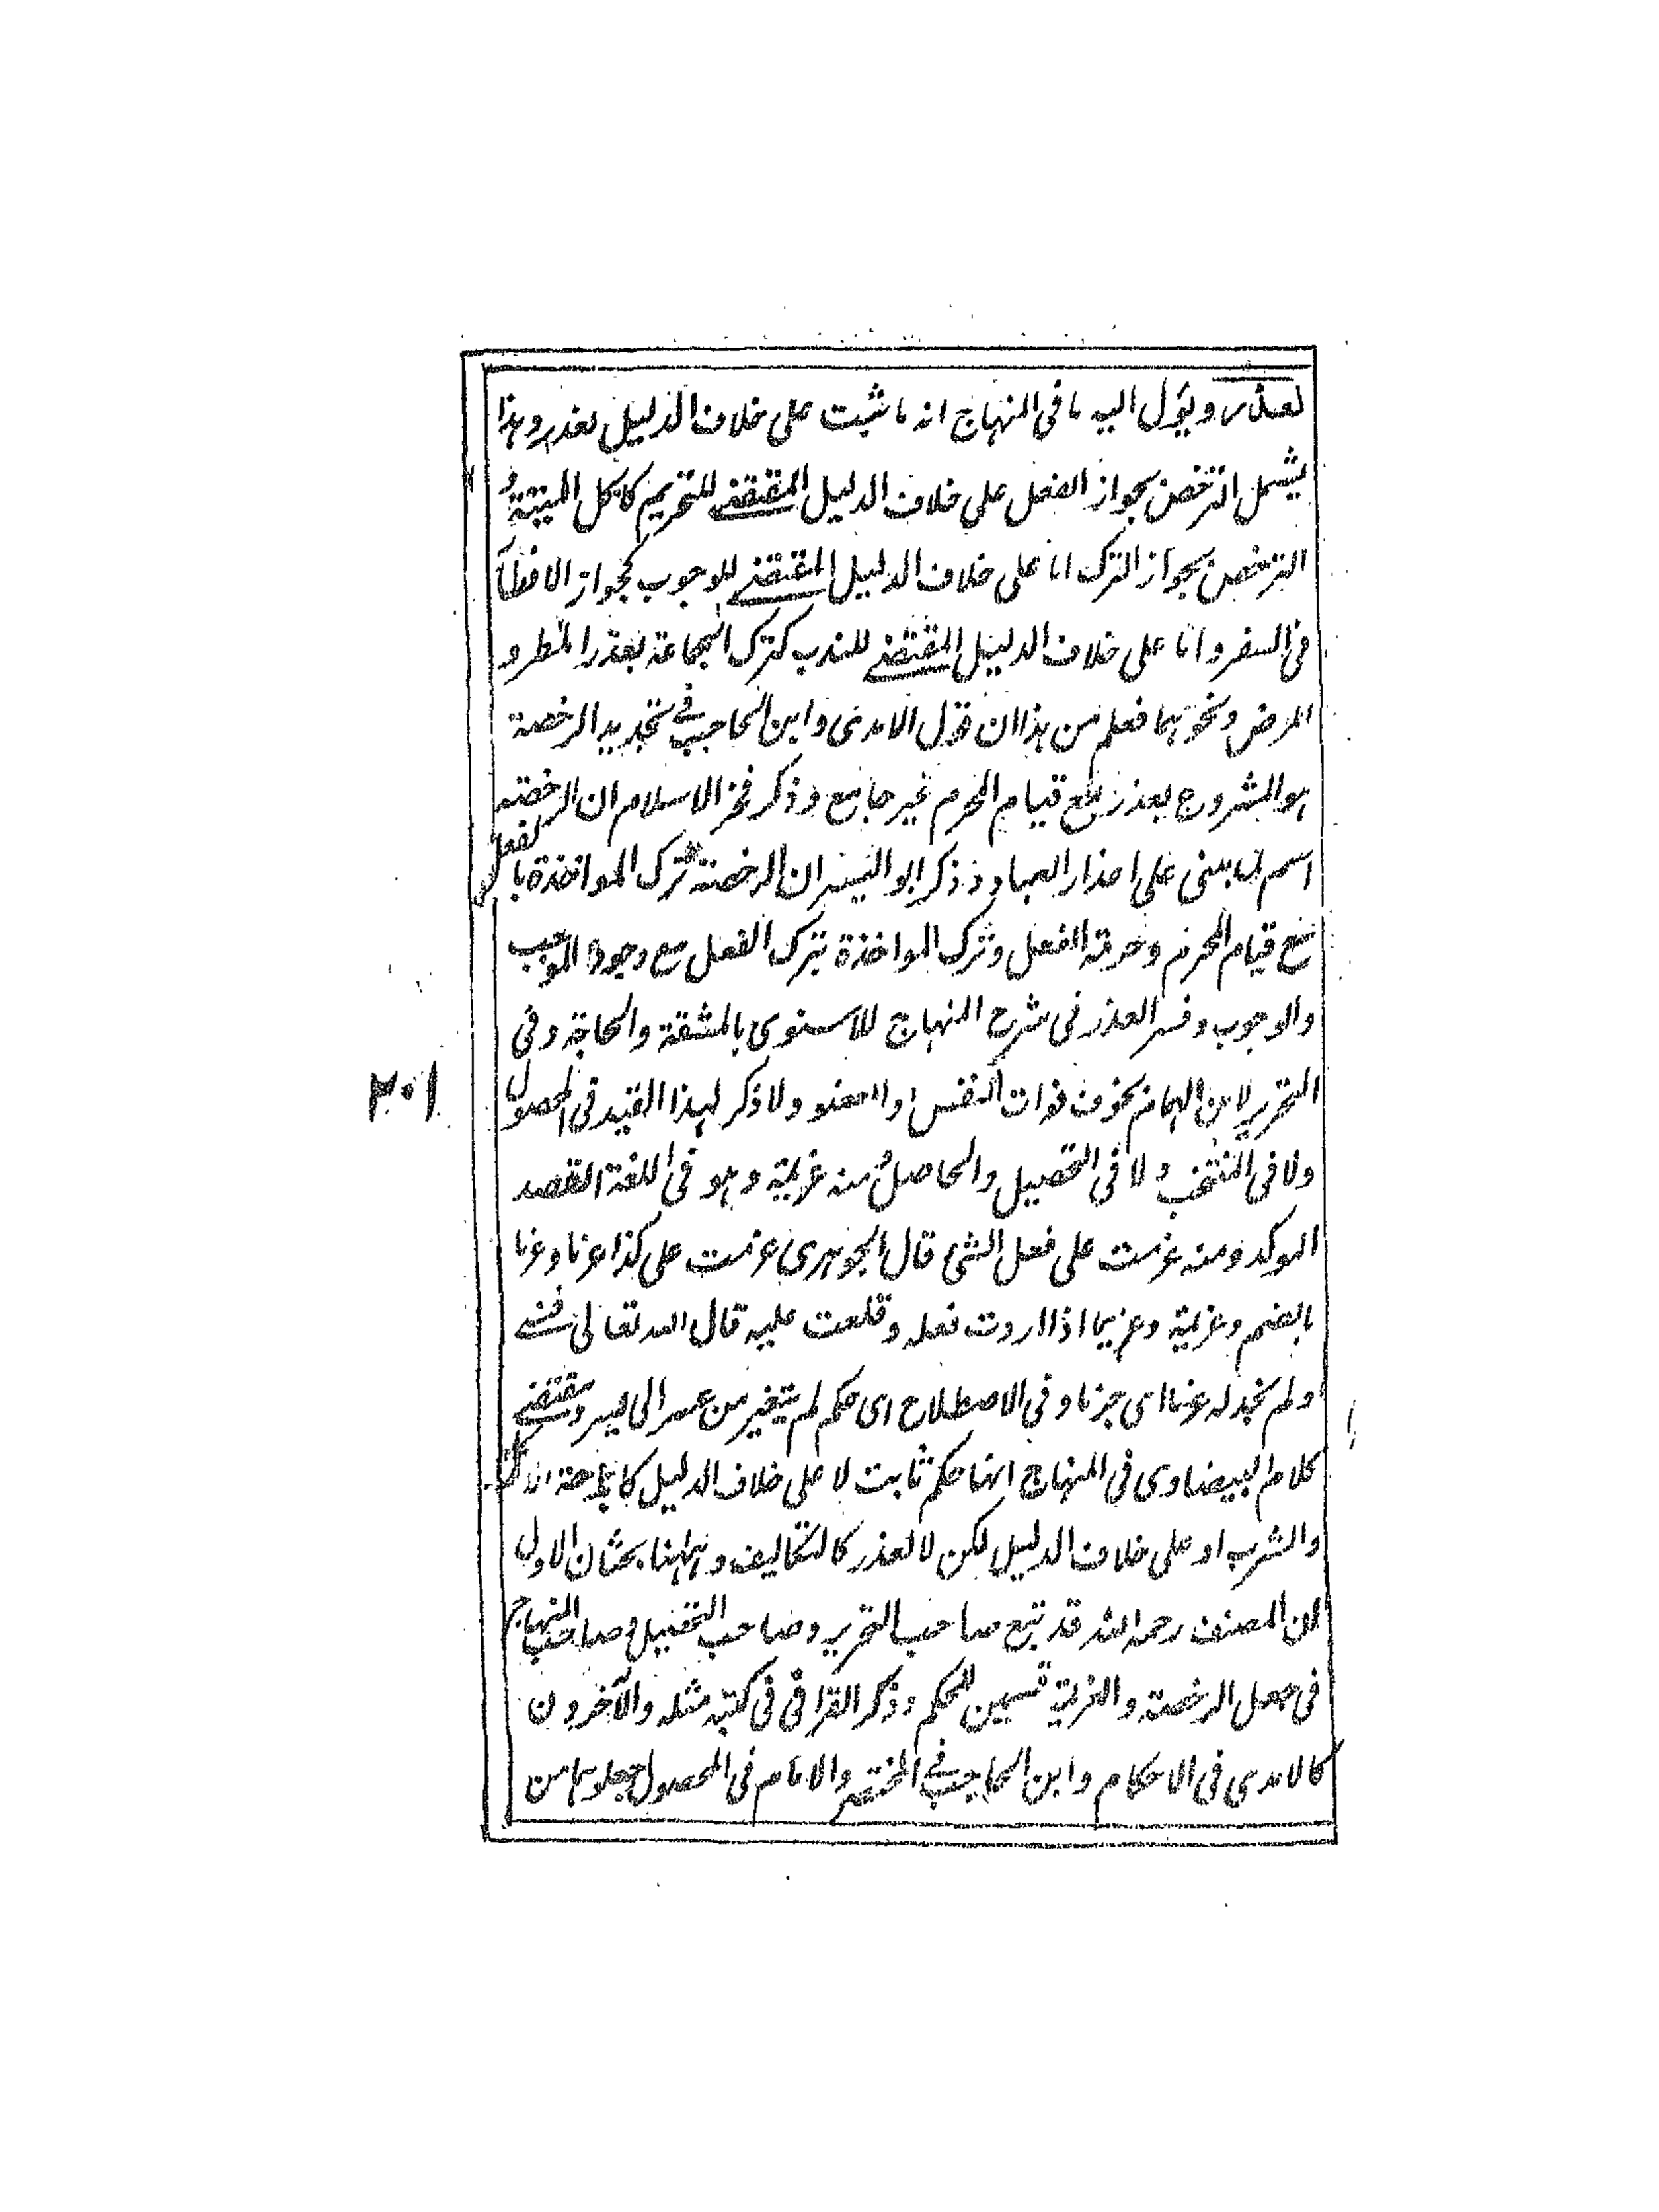 لعذر ويؤل اليه ما فى المنهاج انه ما ثبت على خلاف الدليل لعذر وهذا
يشمل الترخص بجواز الفعل على خلاف الدليل المقتضے للتحريم كاكل الميتة و
الترخص بجواز الترك اما على خلاف الدليل المقتضے للوجوب كجواز الافطار
فى السفر واما على خلاف الدليل المقتضے للندب كترك الجماعة بعذر المطر و
المرض ونحوهما فعلم من هذا ان قول الامدى وابن الحاجب فے تحديد الرخصة
هو المشروع بعذر مع قيام المحرم غير جامع وذكر فخر الاسلام ان الرخصة
اسم لما بنى على اعذار العباد وذكر ابو اليسر ان الرخصة ترك المواخذة بالفعل
مع قيام المحرم وحرمة الفعل وترك المواخذة بترك الفعل مع وجود الموجب
والوجوب وفسر العذر فى شرح المنهاج للاسنوى بالمشقة والحاجة وفى
التحرير لابن الهمام بخوف فوات النفس او العضو ولا ذكر لهذا القيد فى المحصول
ولا فى المنتخب ولا فى التحصيل والحاصل ومنه عزيمة وهو فى اللغة القصد
الموكد ومنه عزمت على فعل الشئ قال الجوهرى عزمت على كذا عزما وعزما
بالضم وعزيمة وعزيما اذا اردت فعله وقطعت عليه قال الله تعالى فنسے
ولم نجد له عزما اى جزما وفى الاصطلاح اى حكم لم يتغير من عسر الى يسر ومقتضے
كلام البيضاوى فى المنهاج انها حكم ثابت لا على خلاف الدليل كاباحة الاكل
والشرب او على خلاف الدليل لكن لا لعذر كالتكاليف وههنا بحثان الاول
ان المصنف رحمه الله قد تبع صاحب التحرير وصاحب التحصيل وصاحب المنهاج
فى جعل الرخصة والعزيمة قسمين للحكم وذكر القرافى فى كتبه مثله والآخرون
كالامدى فى الاحكام وابن الحاجب فے المختصر والامام فى المحصول جعلوهما من
٣٠١